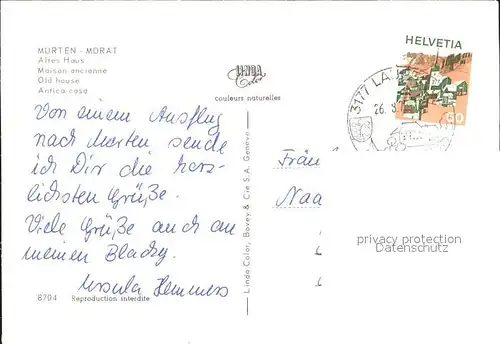 MURTEN - MORAT
Altes Haus
Maison ancienne
Old house
Antica casa
LINDA
Color
couleurs naturelles
HELVETIA
50
3177 LA
26.
Von einem Ausflug
nach Murten sende
ich Dir die herz-
lichsten Grüße.
Viele Grüße auch an
meinen Blacky.
Ursula Hemmers
Fräu
Naa
privacy protection
Datenschutz
Linda Color, Bovey & Cie S.A. Genève
8704 Reproduction interdite